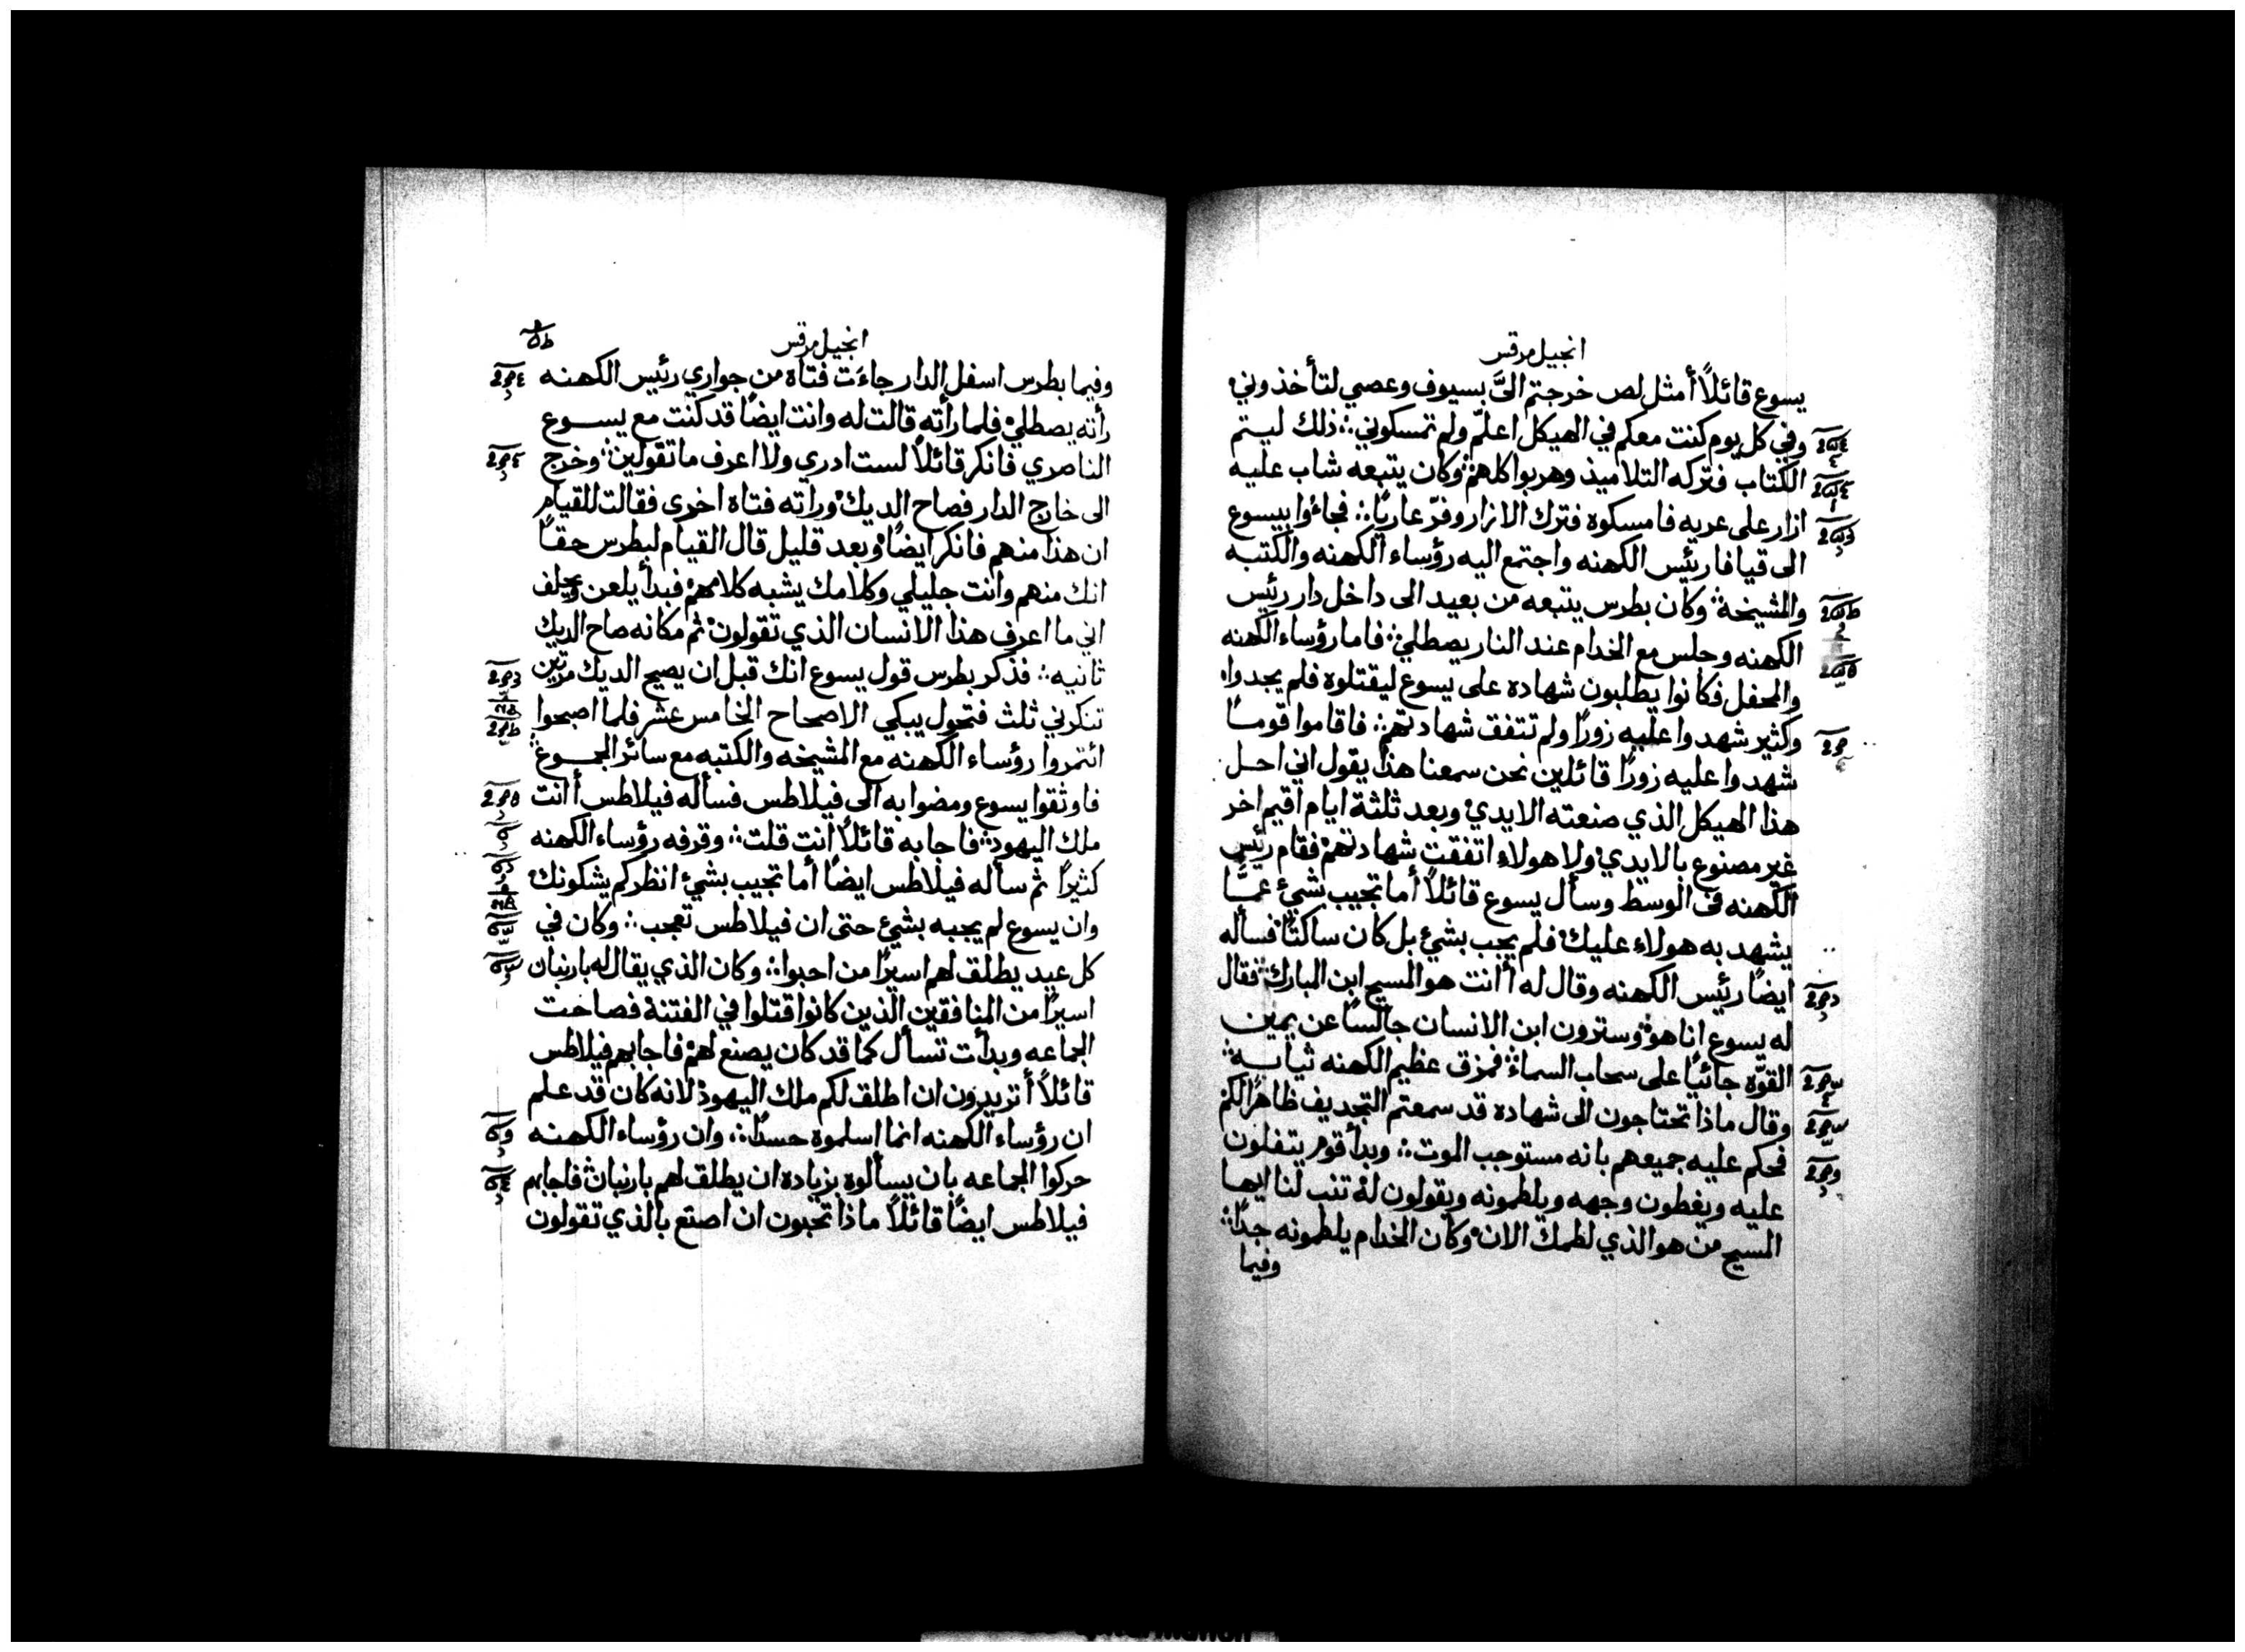 انجيل مرقس
يسوع قائلاً أمثل لص خرجتم الىَّ بسيوف وعصي لتأخذوني
وفي كل يوم كنت معكم في الهيكل اعلّم ولم تمسكوني ∴ ذلك ليتم
الكتاب فتركه التلاميذ وهربوا كلهم ∴ وكان يتبعه شاب عليه
ازار على عريه فامسكوه فترك الازار وفرّ عاريًا ∴ فجاءُوا بيسوع
الى قيافا رئيس الكهنه واجتمع اليه رؤساء الكهنه والكتبه
والمشيخة ∴ وكان بطرس يتبعه من بعيد الى داخل دار رئيس
الكهنه وجلس مع الخدام عند النار يصطلي ∴ فاما رؤساء الكهنه
والمحفل فكانوا يطلبون شهاده على يسوع ليقتلوه فلم يجدوا
وكثير شهدوا عليه زورًا ولم تتفق شهادتهم ∴ فاقاموا قومًا
شهدوا عليه زورًا قائلين نحن سمعنا هذا يقول اني احل
هذا الهيكل الذي صنعته الايدي وبعد ثلثة ايام اقيم اخر
غير مصنوع بالايدي ولا هولاء اتفقت شهادتهم فقام رئيس
الكهنه في الوسط وسأل يسوع قائلاً أما تجيب بشيْ عمّا
يشهد به هولاء عليك فلم يجب بشيْ بل كان ساكتًا فسأله
ايضًا رئيس الكهنه وقال له أانت هو المسيح ابن المبارك فقال
له يسوع انا هو وسترون ابن الانسان جالسًا عن يمين
القوّه جائيًا على سحاب السماء ∴ فمزق عظيم الكهنه ثيابه ∴
وقال ماذا تحتاجون الى شهاده قد سمعتم التجديف ظاهرًا لكم
فحكم عليه جميعهم بانه مستوجب الموت ∴ وبدأ قوم يتفلون
عليه ويغطون وجهه ويلطمونه ويقولون له تنب لنا ايها
المسيح من هو الذي لطمك الان وكان الخدام يلطمونه جدًا ∴
وفيما
انجيل مرقس
وفيما بطرس اسفل الدار جاءَت فتاه من جواري رئيس الكهنه
رأته يصطلي فلما رأته قالت له وانت ايضًا قد كنت مع يسوع
الناصري فانكر قائلاً لست ادري ولا اعرف ما تقولين ∴ وخرج
الى خارج الدار فصاح الديك وراته فتاه اخرى فقالت للقيام
ان هذا منهم فانكر ايضًا وبعد قليل قال القيام لبطرس حقًا
انك منهم وانت جليلي وكلامك يشبه كلامهم فبدأ يلعن ويحلف
اني ما اعرف هذا الانسان الذي تقولون ثم مكانه صاح الديك
ثانيه ∴ فذكر بطرس قول يسوع انك قبل ان يصيح الديك مرتين
تنكرني ثلث فتحول يبكي الاصحاح الخامس عشر فلما اصبحوا
ائتمروا رؤساء الكهنه مع المشيخه والكتبه مع سائر الجموع
فاوثقوا يسوع ومضوا به الى فيلاطس فسأله فيلاطس أانت
ملك اليهود ∴ فاجابه قائلاً انت قلت ∴ وقرفه رؤساء الكهنه
كثيرًا ثم سأله فيلاطس ايضًا أما تجيب بشيْ انظر كم يشكونك
وان يسوع لم يجبه بشيْ حتى ان فيلاطس تعجب ∴ وكان في
كل عيد يطلق لهم اسيرًا من احبوا ∴ وكان الذي يقال له بارنبان
اسيرًا من المنافقين الذين كانوا قتلوا في الفتنة فصاحت
الجماعه وبدأت تسأل كما قد كان يصنع لهم فاجابهم فيلاطس
قائلاً أتريدون ان اطلق لكم ملك اليهود لانه كان قد علم
ان رؤساء الكهنه انما اسلموه حسدًا ∴ وان رؤساء الكهنه
حركوا الجماعه بان يسألوه بزياده ان يطلق لهم بارنبان فاجابهم
فيلاطس ايضًا قائلاً ماذا تحبون ان اصنع بالذي تقولون